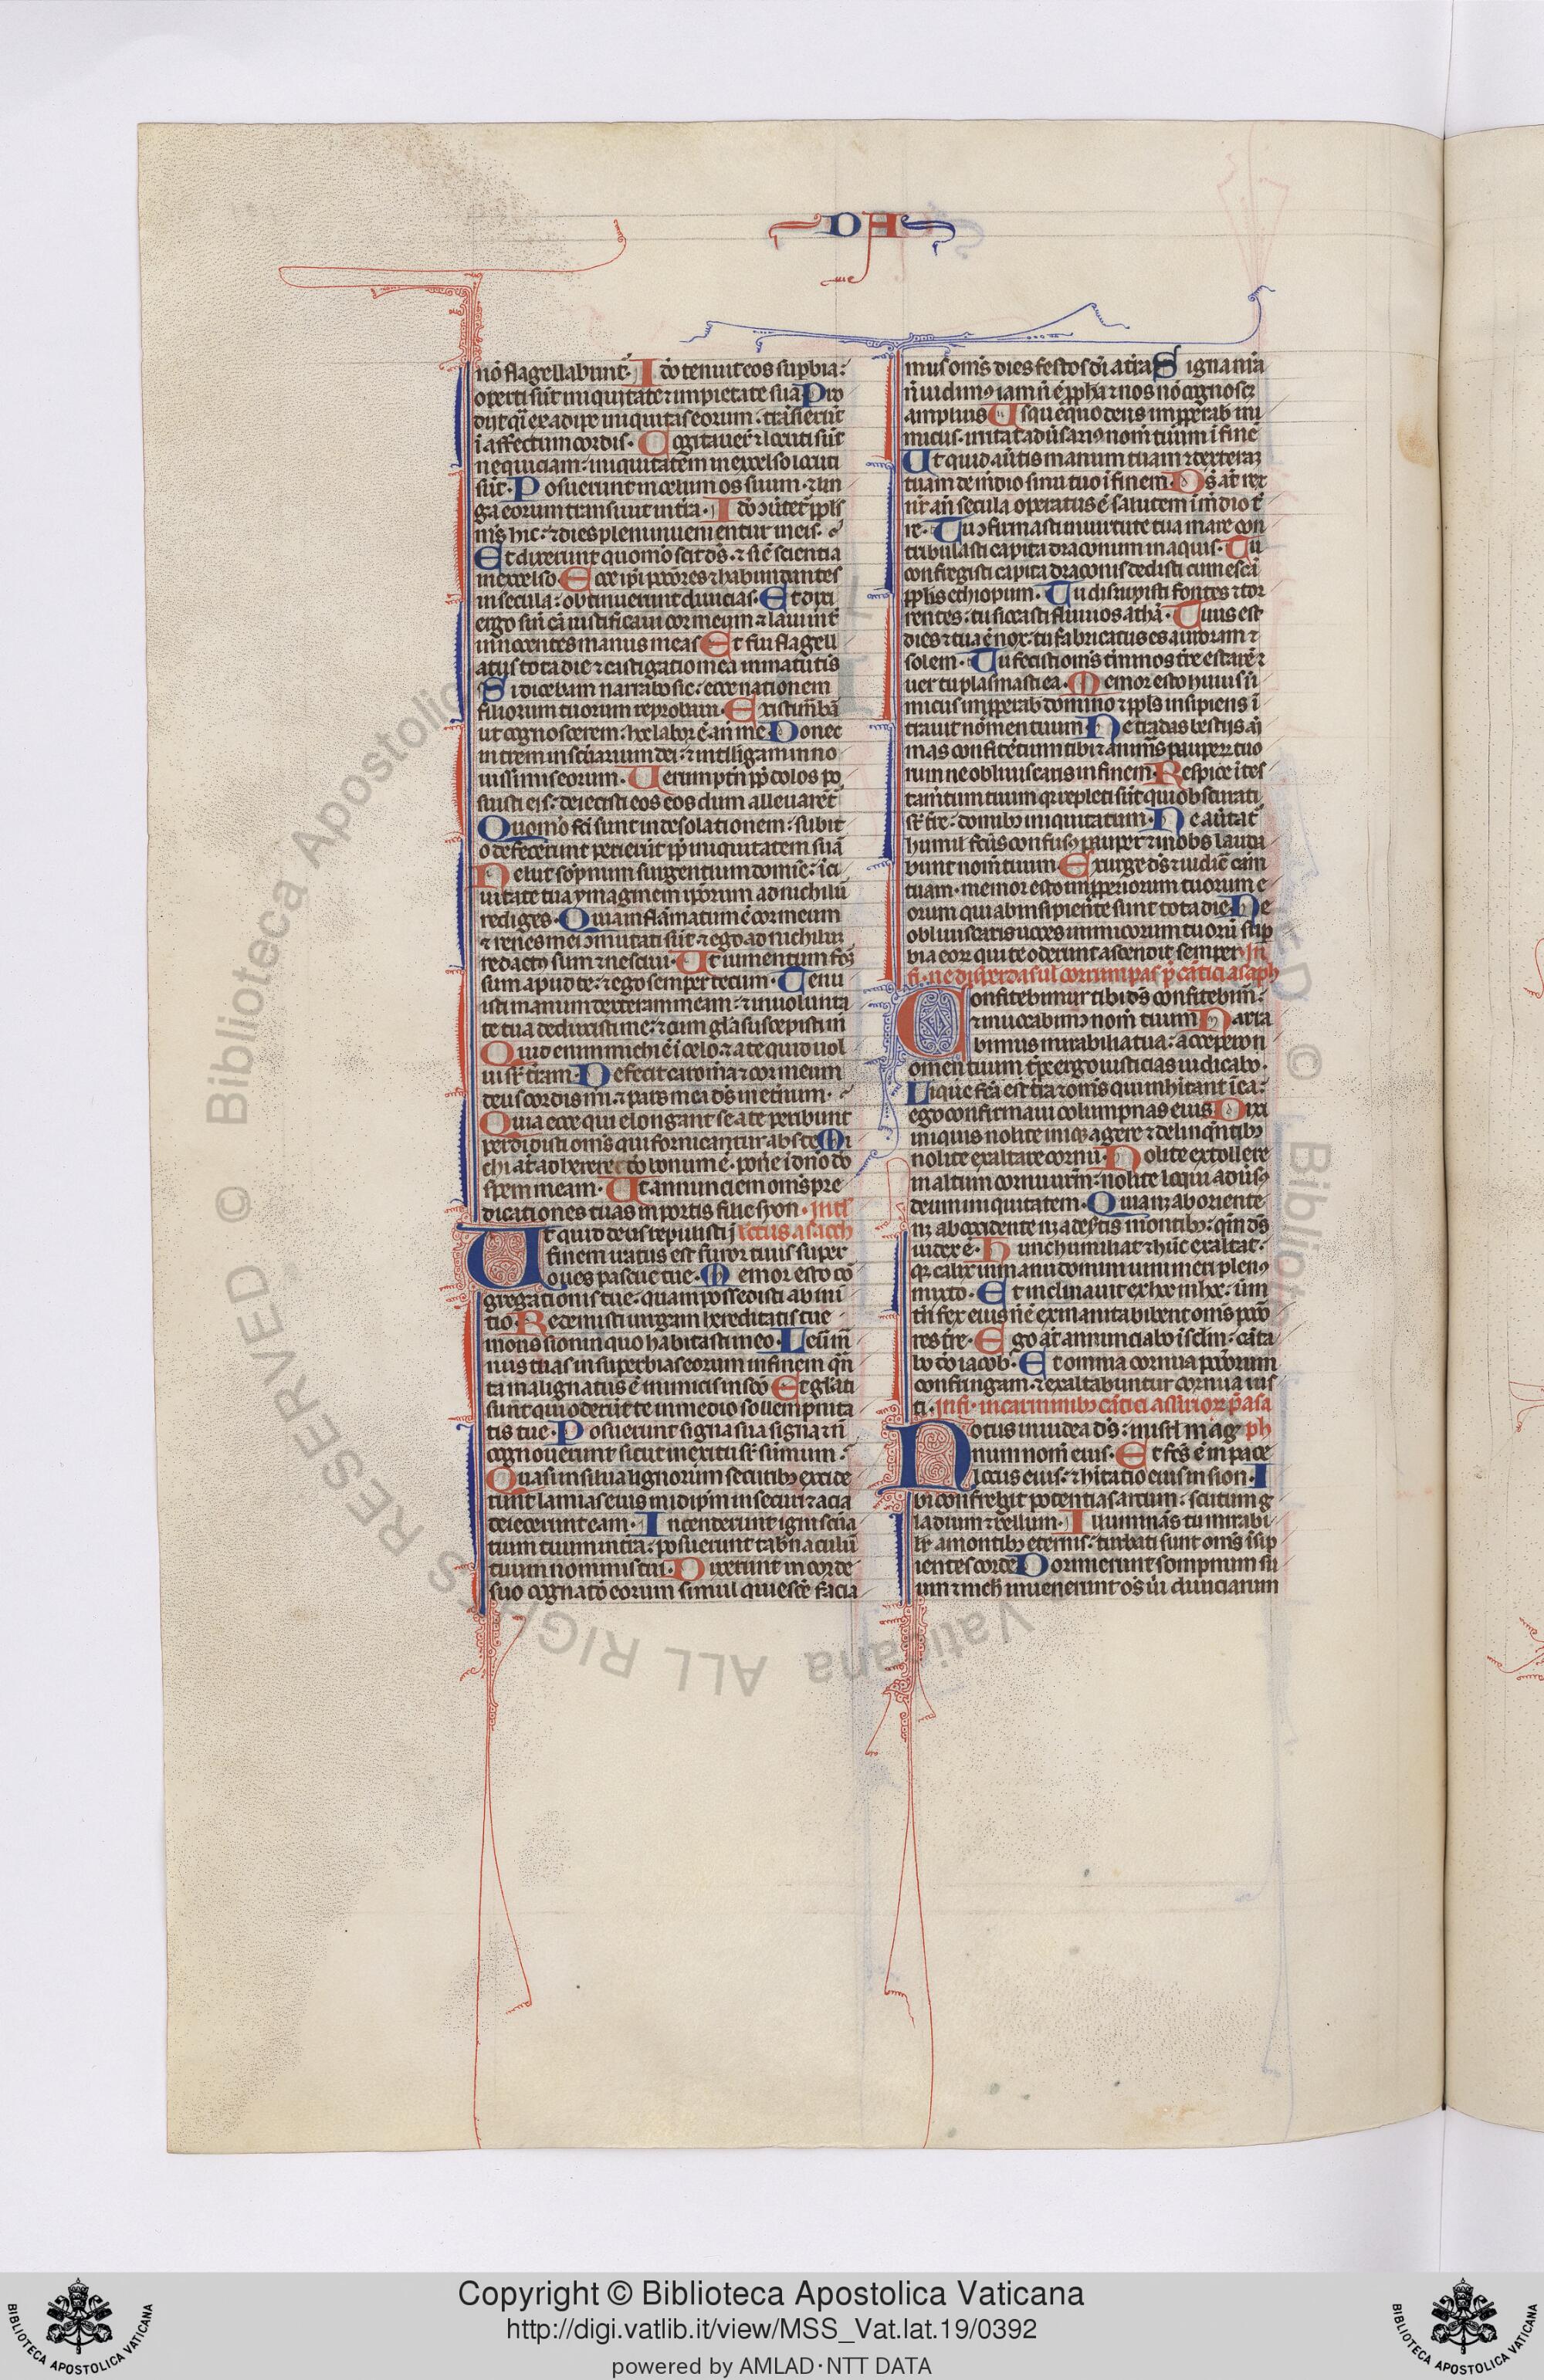 DA
nō flagellabunt͛ Ido tenuit eos supbia:
operti sūt iniquitate ⁊ impietate suā Pro
diit qͣi ex adipe iniquitas eorum: trāsierūt
ī affectum cordis. Cogitauer̄t ⁊ locuti sūt
nequiciam: iniquitatem in excelso locuti
sūt. Posuerunt in celum os suum. ⁊ lin
gᷓ eorum transiuit in t̄ra. Idō ↄūtet᷑ ppl̄s
mͤs hic: ⁊ dies pleni inuenientur in eis.
Et dixerunt quomō scit dͤs. ⁊ si ē scientia
in excelso. Ecce ip̄i pcc̄ores ⁊ habundantes
in secula: obtinuerunt diuicias. Et dixi
ergo sn̄ cā iustificaui cor meum ⁊ laui int᷑
innocentes manus meas Et fui flagell
atus tota die ⁊ castigatio mea in matutīs
Si dicebam narrabo sic: ecce nationem
filiorum tuorum reprobaui. Existim̄bā
ut cognoscerem: hec labor ē an̄ me Donec
intrem in sc̄uarium dei: ⁊ intelligam in no
uissimis eorum. Uerumptn̄ pp̄ dolos po
suisti eis: deiecisti eos eos dum alleuarēt᷑
Quomō fc̄i sunt in desolationem: subit
o defecerunt perierūt pp̄ iniquitatem suā
Uelut sōpnum surgentium domīe: ī ci
uitate tua ymaginem ip̄orum ad nichilū
rediges. Quia inflāmatum ē cor meum
⁊ renes mei ↄmutati sūt ⁊ ego ad nichilum
redactꝰ sum ⁊ nesciui. Ut iumentum fc̄s
sum apud te: ⁊ ego semper tecum. Tenu
isti manum dexteram meam: ⁊ in uolunta
te tua deduxisti me: ⁊ cum gl̄a suscepisti m̄
Quid enim michi ē ī celo: ⁊ a te quid uol
ui sꝑ t̄ram. Defecit caro m̄a ⁊ cor meum
deus cordis mī: ⁊ pars mea dͤs in et̄num.
Quia ecce qui elongant se a te peribunt
perdidisti om̄s qui fornicantur abs te Mi
chi aūt adherere dō bonum ē. pone ī dn̄o dō
spem meam. Ut annunciem om̄s pre
dicationes tuas in portis filie syon. Intl̄
Ut quid deus repulisti ī lectus asaph
finem iratus est furor tuus super
oues pascue tue. Memor esto cō
gregationis tue. quam possedisti ab ini
tio Redemisti uirgam hereditatis tue
mons sion in quo habitasti in eo. Leua m̄
nus tuas in superbias eorum in finem qn̄
ta malignatus ē inimicus in sc̄o Et gl̄iati
sunt qui oderūt te in medio sollempnita
tis tue. Posuerunt signa sua signa ⁊ n̄
cognouerunt sicut in exitu sꝑ sūmum.
Quasi in silua lignorum securibꝰ excide
runt ianuas eius in id ip̄m in securi ⁊ acia
deiecerunt eam. Incenderunt igni scūa
rium tuum in t̄ra: polluerunt tab̄naculū
tuum nominis tui. Dixerunt in corde
suo cognatō eorum simul quiescē facia
mus om̄s dies festos dī a t̄ra Signa nr̄a
n̄ uidimꝰ iam n̄ ē pp̄ha ⁊ nos nō cognoscꝫ
amplius Usquequo deus impperab ini
micus. irritat aduersariꝰ nom̄ tuum ī finē
Ut quid au̓tis manum tuam ⁊ dexterā
tuam de medio sinu tuo ī finem. Dͤs aūt rex
nr̄ an̄ secula operatus ē salutem ī medio t̄
re. Tu ↄfirmasti in uirtute tua mare con
tribulasti capita draconum in aquis. Tu
confregisti capita draconis dedisti eum escā
pplis ethiopum. Tu disrupisti fontes ⁊ tor
rentes: tu siccasti fluuios athā. Tuus est
dies ⁊ tua ē nox: tu fabricatus es auroram ⁊
solem. Tu fecisti om̄s t̄minos t̄re estatē ⁊
uer tu plasmasti ea. Memor esto huius ī
micus impperab domino ⁊ ppl̄s insipiens ī
citauit nomen tuum Ne tradas bestiis aī
mas confitētium tibi ⁊ animas pauperum tuo
rum ne obliuiscaris in finem. Respice ī tes
tam̄tum tuum qꝛ repleti sūt qui obscurati
sꝫ t̄re: domibꝰ iniquitatum. Ne au̓tat᷑
humil̄ fc̄us confusꝰ pauper ⁊ inobs lauda
bunt nom̄ tuum. Exurge dͤs ⁊ iudicā cām
tuam. memor esto impperiorum tuorum e
orum qui ab insipiente sunt tota die Ne
obliuiscaris uoces inimicorum tuorū sup
bia eorum qui te oderunt ascendit semper In
fi. ne disperdas ul̄ corrumpas ps̄ cātici asaph
Confitebimur tibi dͤs confitebim̄:
⁊ inuocabimꝰ nom̄ tuum Narra
bimus mirabilia tua: accepero n
omen tuum tp̄e ergo iusticias iudicabo.
Liquefc̄a est t̄ra ⁊ om̄s qui inhītant ī ea:
ego confirmaui columpnas eius Dixi
iniquis nolite inique agere ⁊ delinqūtibꝰ
nolite exaltare cornū. Nolite extollere
in altum cornu ur̄m: nolite loqui aduersꝰ
deum iniquitatem. Quia nꝫ ab oriente
nꝫ ab occidente nꝫ a dēstis mōntibꝰ: qm̄ dͤs
iudex ē. Hunc humiliat ⁊ hūc exaltat:
qꝛ calix in manu domini uini meri plenꝰ
mixto. Et inclinauit ex hoc in hoc: um̄
tn̄ fex eius n̄ ē exinanita bibent om̄s pcc̄o
res t̄re. Ego aūt annunciabo ī sclm̄: cāta
bo dō iacob. Et omnia cornua pcc̄orum
confringam. ⁊ exaltabuntur cornua ius
ti. In fi. in carminibꝰ cātici assirioꝝ ps̄ asa
Notus in iudea dͤs: in isrl̄ mag ph
num nom̄ eius. Et fc̄s ē in pace
locus eius: ⁊ hītatio eius in sion. I
bi confregit potentias arcum: scutum g
ladium ⁊ bellum. Illuminās tu mirabi
lit᷑ a montibꝰ eternis: turbati sunt om̄s īsip
ientes corde Dormierunt sompnum su
um ⁊ nichil inuenerunt om̄s uiri diuiciarum
Copyright © Biblioteca Apostolica Vaticana
http://digi.vatlib.it/view/MSS_Vat.lat.19/0392
powered by AMLAD·NTT DATA
BIBLIOTECA APOSTOLICA VATICANA
BIBLIOTECA APOSTOLICA VATICANA